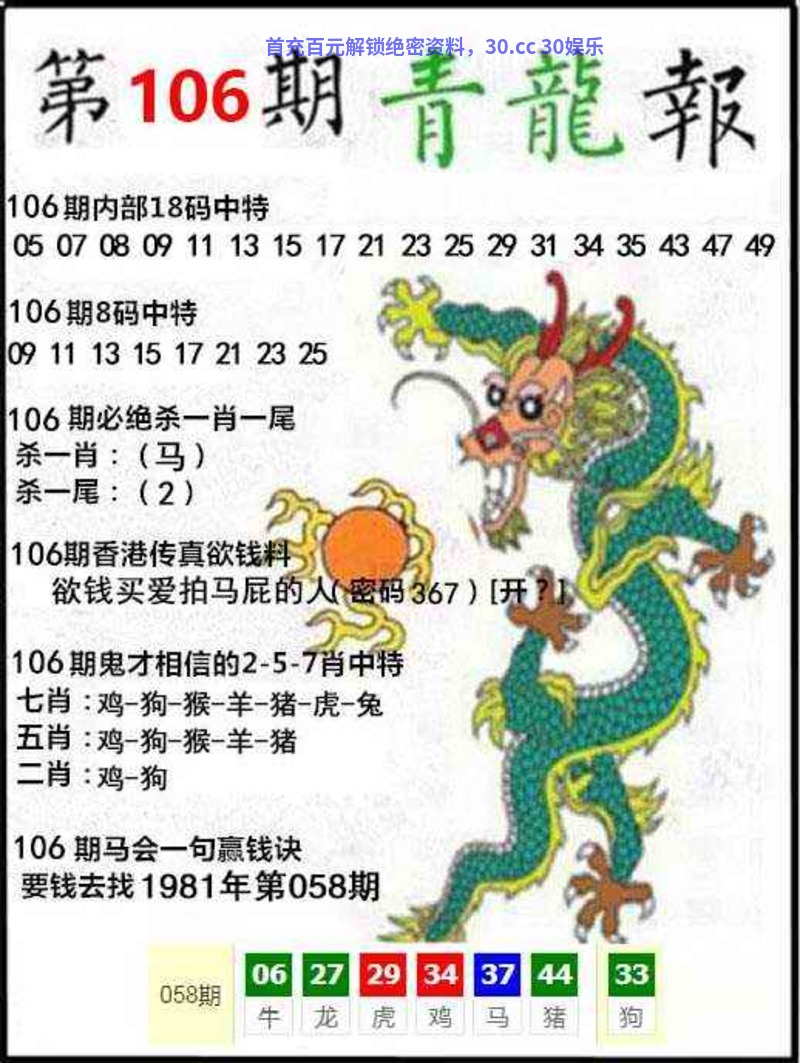 首充百元解锁绝密资料，30.cc 30娱乐
第106期青龍報
106期内部18码中特
05 07 08 09 11 13 15 17 21 23 25 29 31 34 35 43 47 49
106期8码中特
09 11 13 15 17 21 23 25
106期必绝杀一肖一尾
杀一肖：（马）
杀一尾：（2）
106期香港传真欲钱料
欲钱买爱拍马屁的人(密码367)[开？]
106期鬼才相信的2-5-7肖中特
七肖：鸡-狗-猴-羊-猪-虎-兔
五肖：鸡-狗-猴-羊-猪
二肖：鸡-狗
106期马会一句赢钱诀
要钱去找1981年第058期
058期 06 27 29 34 37 44 33
牛 龙 虎 鸡 马 猪 狗